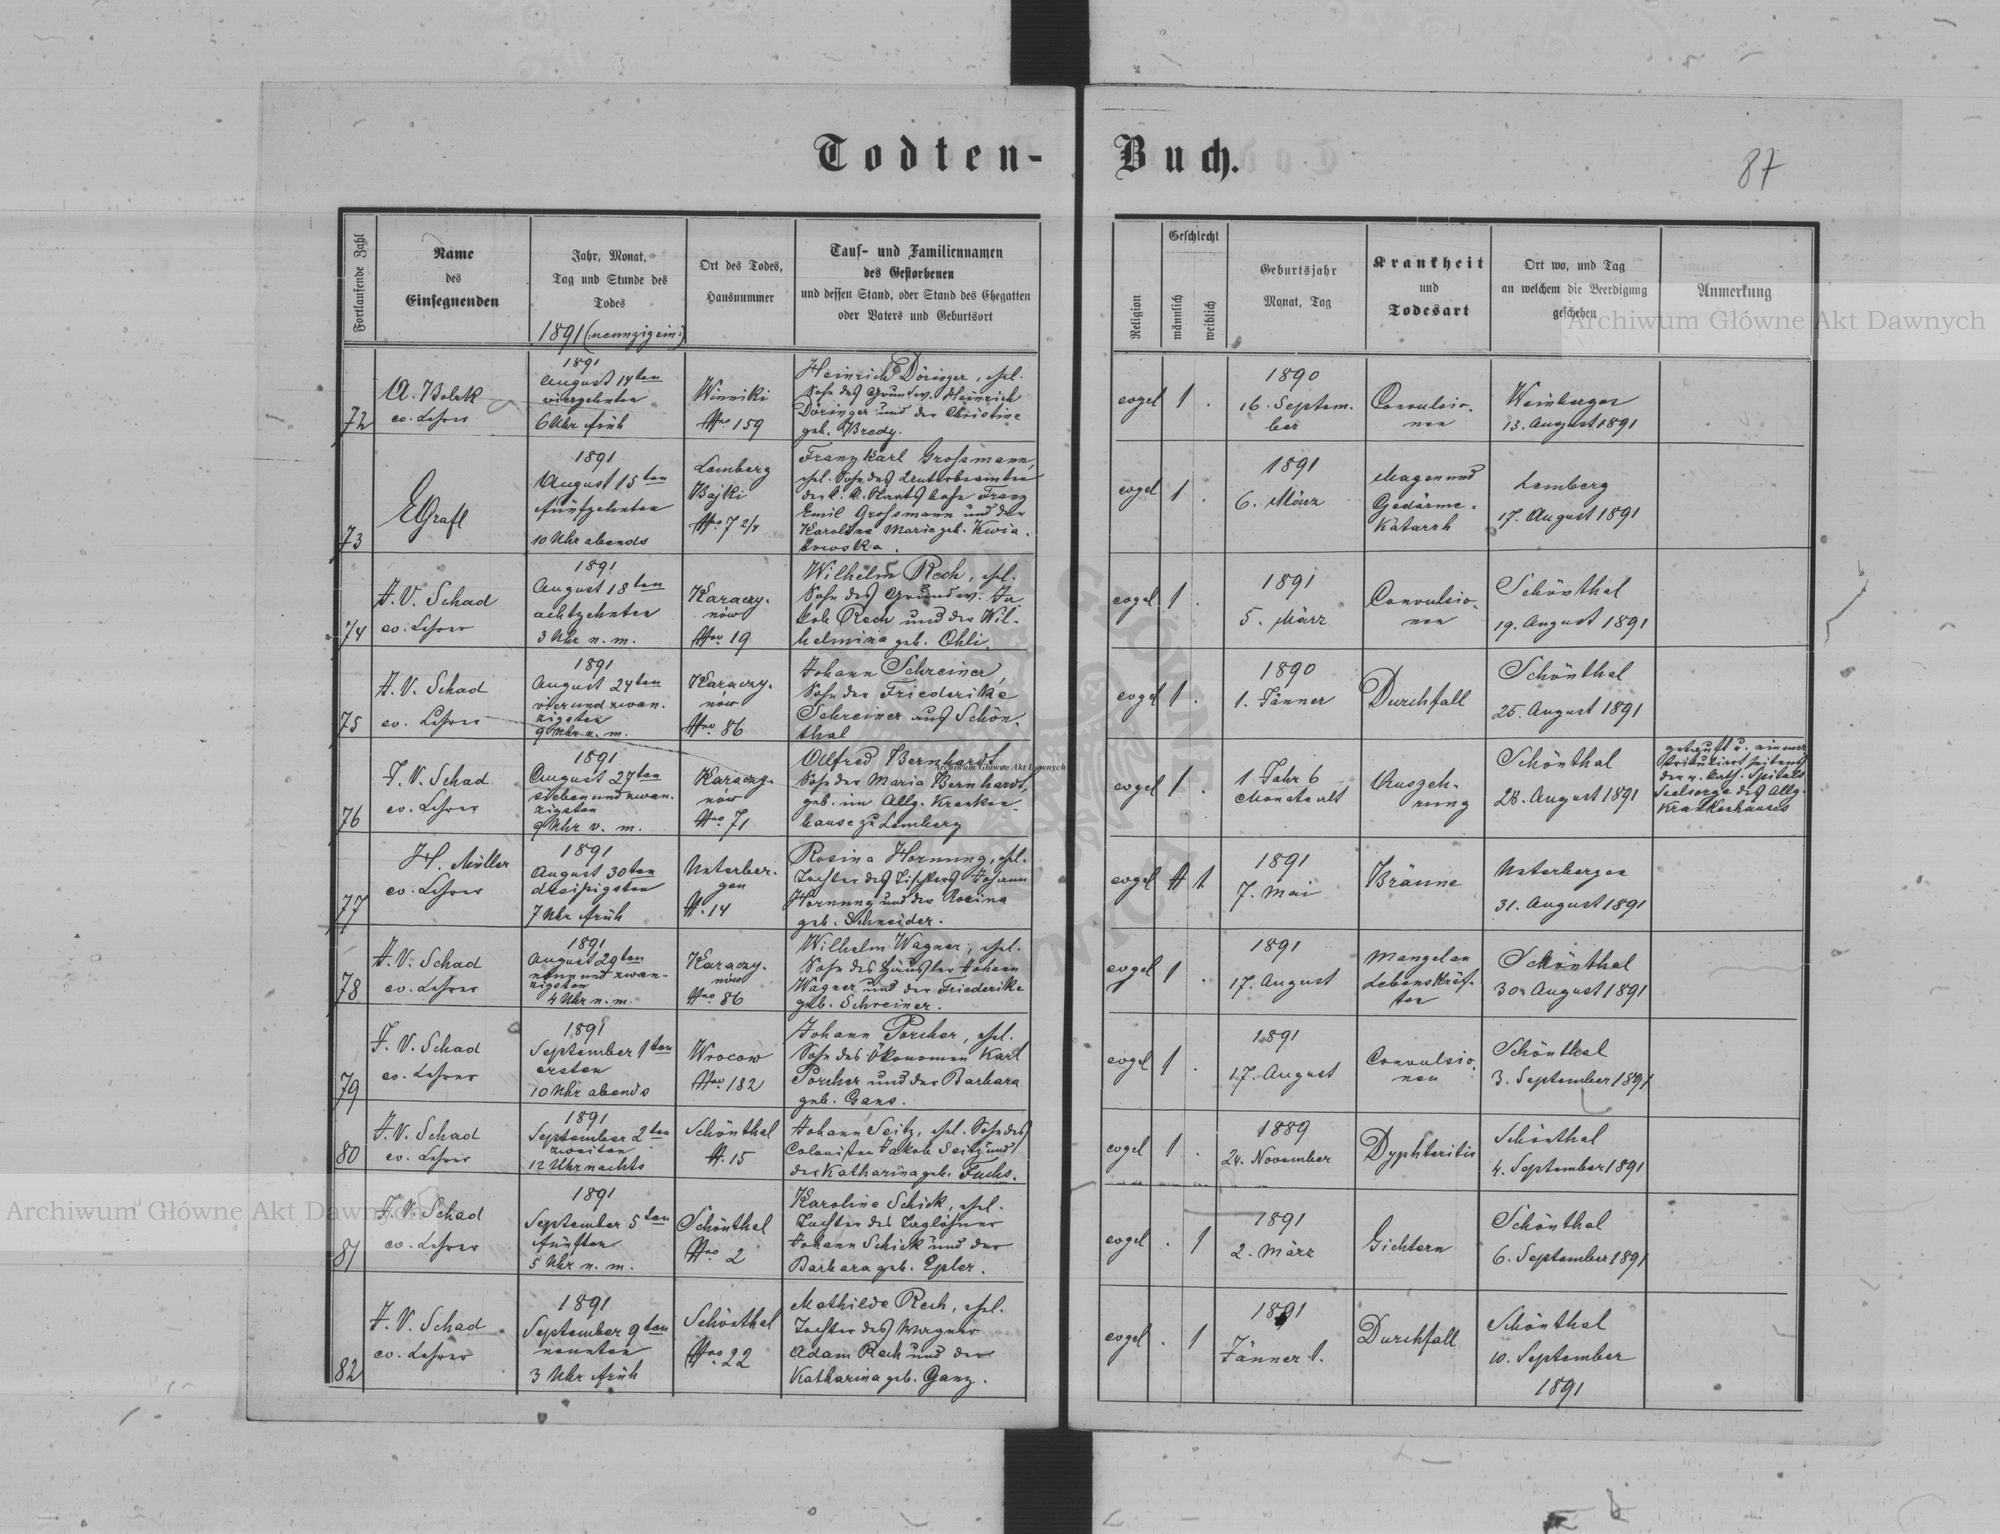 Todten-Buch.
87
Fortlaufende Zahl
Name
des
Einsegnenden
Jahr, Monat,
Tag und Stunde des
Todes
1891 (neunzigein)
Ort des Todes,
Hausnummer
Tauf- und Familiennamen
des Gestorbenen
und dessen Stand, oder Stand des Ehegatten
oder Vaters und Geburtsort
Religion
Geschlecht
männlich
weiblich
Geburtsjahr
Monat, Tag
Krankheit
und
Todesart
Ort wo, und Tag
an welchem die Beerdigung
geschehen
Anmerkung
Archiwum Główne Akt Dawnych
72
ev. Lehrer
1891
August 14ten
vierzehnten
6 Uhr früh
Winniki
Nro 159
Heinrich Döringer, ehel.
Sohn des Grundw. Heinrich
Döringer und der Christine
geb. Bredy.
evgel
1 .
1890
16. Septem-
ber
Convulsio-
nen
Weinbergen
13. August 1891
73
EGrafl
1891
August 15ten
fünfzehnten
10 Uhr abends
Lemberg
Bajki
Nro 7 2/4
Franz Karl Grossmann,
der k. k. Staatsbahn Franz
Emil Grossmann und der
Karoline Maria geb. Kwia-
kowska.
evgel
1 .
1891
6. März
Magen und
Gedärme-
Katarrh
Lemberg
17. August 1891
74
J. V. Schad
ev. Lehrer
1891
August 18ten
achtzehnten
3 Uhr n. m.
Karaczy-
nów
Nro 19
Wilhelm Rech, ehel.
Sohn des Grundw. Ja
kob Rech und der Wil-
helmina geb. Ohli.
evgel
1 .
1891
5. März
Convulsio-
nen
Schönthal
19. August 1891
75
J. V. Schad
ev. Lehrer
1891
August 24ten
vier und zwan-
zigsten
9 Uhr a. m.
Karaczy-
nów
Nro 86
Johann Schreiner,
Sohn der Friederike
Schreiner aus Schön-
thal
evgel
1 .
1890
1. Jänner
Durchfall
Schönthal
25. August 1891
76
J. V. Schad
ev. Lehrer
1891
August 27ten
sieben und zwan-
zigsten
9 Uhr v. m.
Karaczy-
nów
Nro 71
Alfred Bernhardt
Archiwum Główne Akt Dawnych
Sohn der Maria Bernhardt,
geb. im Allg. Kranken-
hause zu Lemberg
evgel
1 .
1 Jahr 6
Monate alt
Auszeh-
rung
Schönthal
28. August 1891
getauft u.
der r. kath. Spitals
Seelsorge des Allg.
Krankenhauses
77
H. Müller
ev. Lehrer
1891
August 30ten
dreißigsten
7 Uhr früh
Unterber-
gen
N. 14
Rosina Hornung, ehel.
Tochter des Tischlers Johann
Hornung und der Rosina
geb. Schneider.
evgel
1
1891
7. Mai
Bräune
Unterbergen
31. August 1891
78
J. V. Schad
ev. Lehrer
1891
August 29ten
neun und zwan-
zigsten
4 Uhr n. m.
Karaczy-
nów
Nro 86
Wilhelm Wagner, ehel.
Sohn des Häusler Johann
Wagner und der Friederike
geb. Schreiner.
evgel
1 .
1891
17. August
Mangel an
Lebenskräf-
ten
Schönthal
30. August 1891
79
J. V. Schad
ev. Lehrer
1891
September 1ten
ersten
10 Uhr abends
Wrocow
Nro 182
Johann Porcher, ehel.
Sohn des Ökonomen Karl
Porcher und der Barbara
geb. Gans.
evgel
1 .
1891
17. August
Convulsio-
nen
Schönthal
3. September 1891
80
J. V. Schad
ev. Lehrer
1891
September 2ten
zweiten
12 Uhr nachts
Schönthal
N. 15
Johann Seitz, ehel. Sohn des
Colonisten Jakob Seitz und
der Katharina geb. Fuchs.
evgel
1 .
1889
24. November
Dyphteritis
Schönthal
4. September 1891
Archiwum Główne Akt Dawnych
81
J. V. Schad
ev. Lehrer
1891
September 5ten
fünften
5 Uhr n. m.
Schönthal
Nro 2
Karolina Schick, ehel.
Tochter des Taglöhner
Johann Schick und der
Barbara geb. Epler.
evgel
. 1
1891
2. März
Gichtern
Schönthal
6. September 1891
82
J. V. Schad
ev. Lehrer
1891
September 9ten
neunten
3 Uhr früh
Schönthal
Nro 22
Mathilde Rech, ehel.
Tochter des Wagner
Adam Rech und der
Katharina geb. Ganz.
evgel
. 1
1891
Jänner 1.
Durchfall
Schönthal
10. September
1891